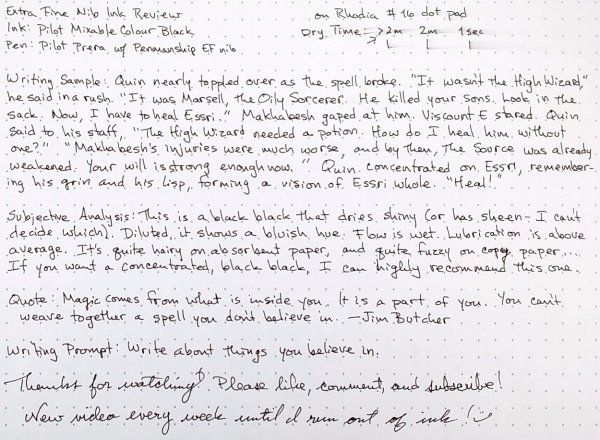 Extra Fine Nib Ink Review on Rhodia #16 dot pad
Ink: Pilot Mixable Colour Black Dry Time: >2m 2m 1sec
Pen: Pilot Prera w/ Penmanship EF nib
Writing Sample: Quin nearly toppled over as the spell broke. "It wasn't the High Wizard,"
he said in a rush. "It was Marsell, the Oily Sorcerer. He killed your sons. Look in the
sack. Now, I have to heal Essri." Makhabesh gaped at him. Viscount E stared. Quin
said to his staff, "The High Wizard needed a potion. How do I heal him without
one?" "Makhabesh's injuries were much worse, and by then, The Source was already
weakened. Your will is strong enough now." Quin concentrated on Essri, remember-
ing his grin and his lisp, forming a vision of Essri whole. "Heal!"
Subjective Analysis: This is a black black that dries shiny (or has sheen - I can't
decide which). Diluted, it shows a bluish hue. Flow is wet. Lubrication is above
average. It's quite hairy on absorbent paper, and quite fuzzy on copy paper....
If you want a concentrated, black black, I can highly recommend this one.
Quote: Magic comes from what is inside you. It is a part of you. You can't
weave together a spell you don't believe in. —Jim Butcher
Writing Prompt: Write about things you believe in.
Thanks for watching! Please like, comment, and subscribe!
New video every week until I run out of ink!